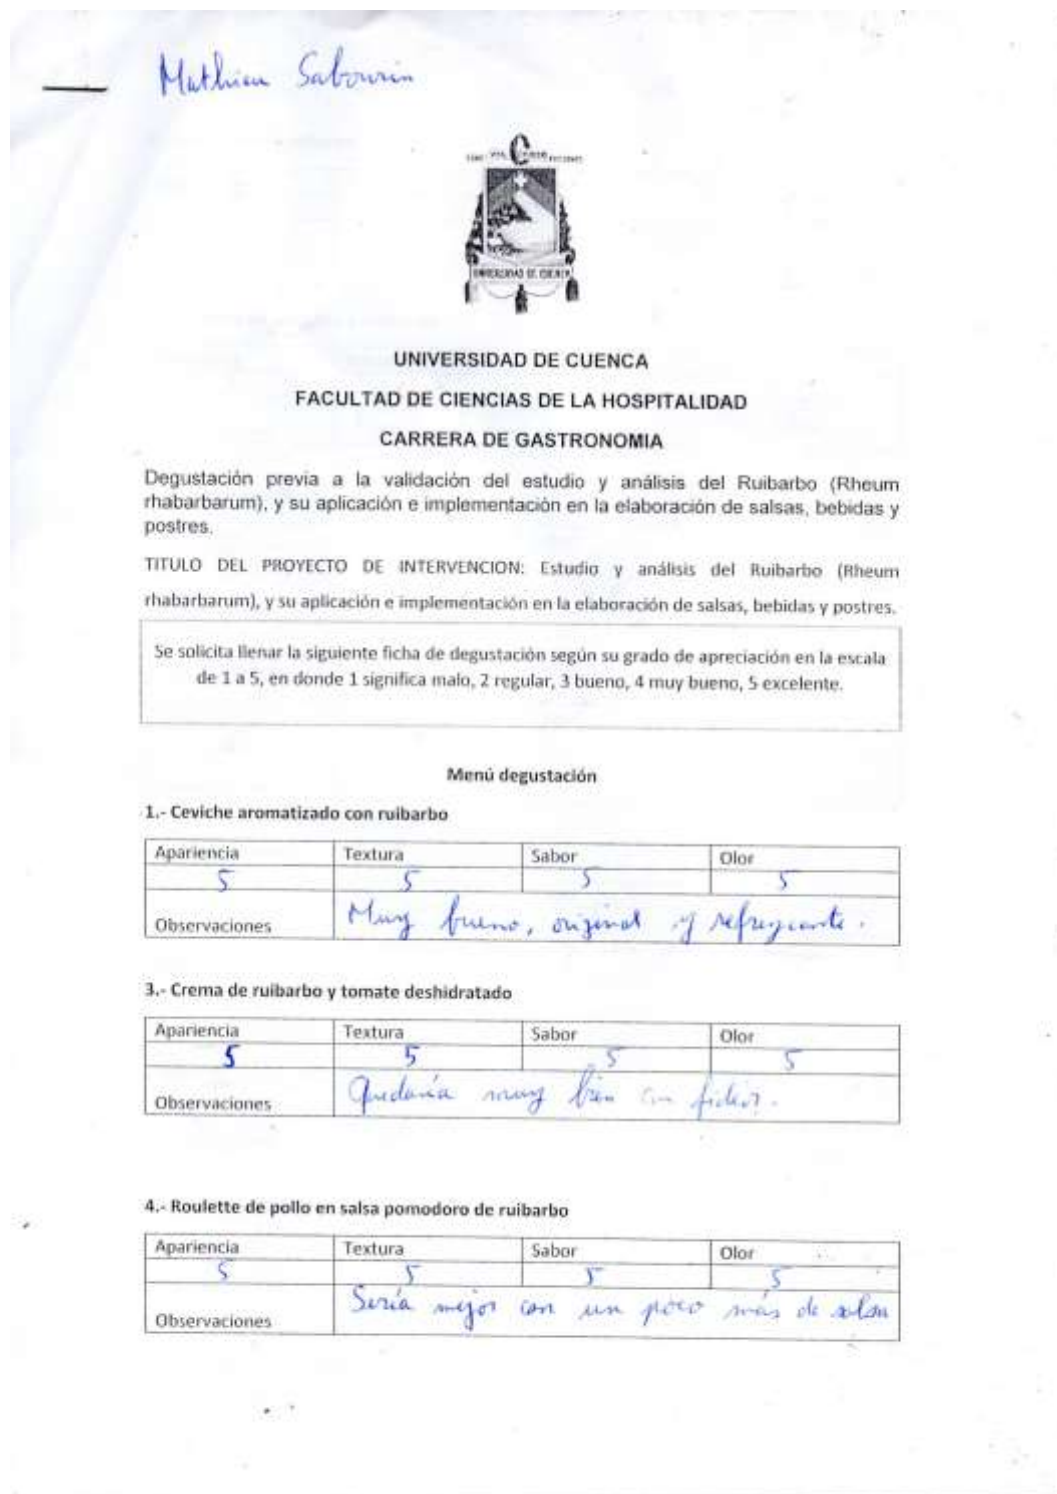 Mathieu Sabourin
UNIVERSIDAD DE CUENCA
UNIVERSIDAD DE CUENCA
FACULTAD DE CIENCIAS DE LA HOSPITALIDAD
CARRERA DE GASTRONOMIA
Degustación previa a la validación del estudio y análisis del Ruibarbo (Rheum
rhabarbarum), y su aplicación e implementación en la elaboración de salsas, bebidas y
postres.
TITULO DEL PROYECTO DE INTERVENCION: Estudio y análisis del Ruibarbo (Rheum
rhabarbarum), y su aplicación e implementación en la elaboración de salsas, bebidas y postres.
Se solicita llenar la siguiente ficha de degustación según su grado de apreciación en la escala
de 1 a 5, en donde 1 significa malo, 2 regular, 3 bueno, 4 muy bueno, 5 excelente.
Menú degustación
1.- Ceviche aromatizado con ruibarbo
Apariencia Textura Sabor Olor
5 5 5 5
Observaciones Muy bueno, original y refrescante.
3.- Crema de ruibarbo y tomate deshidratado
Apariencia Textura Sabor Olor
5 5 5 5
Observaciones Quedaría muy bien con fideos.
4.- Roulette de pollo en salsa pomodoro de ruibarbo
Apariencia Textura Sabor Olor
5 5 5 5
Observaciones Sería mejor con un poco más de salsa